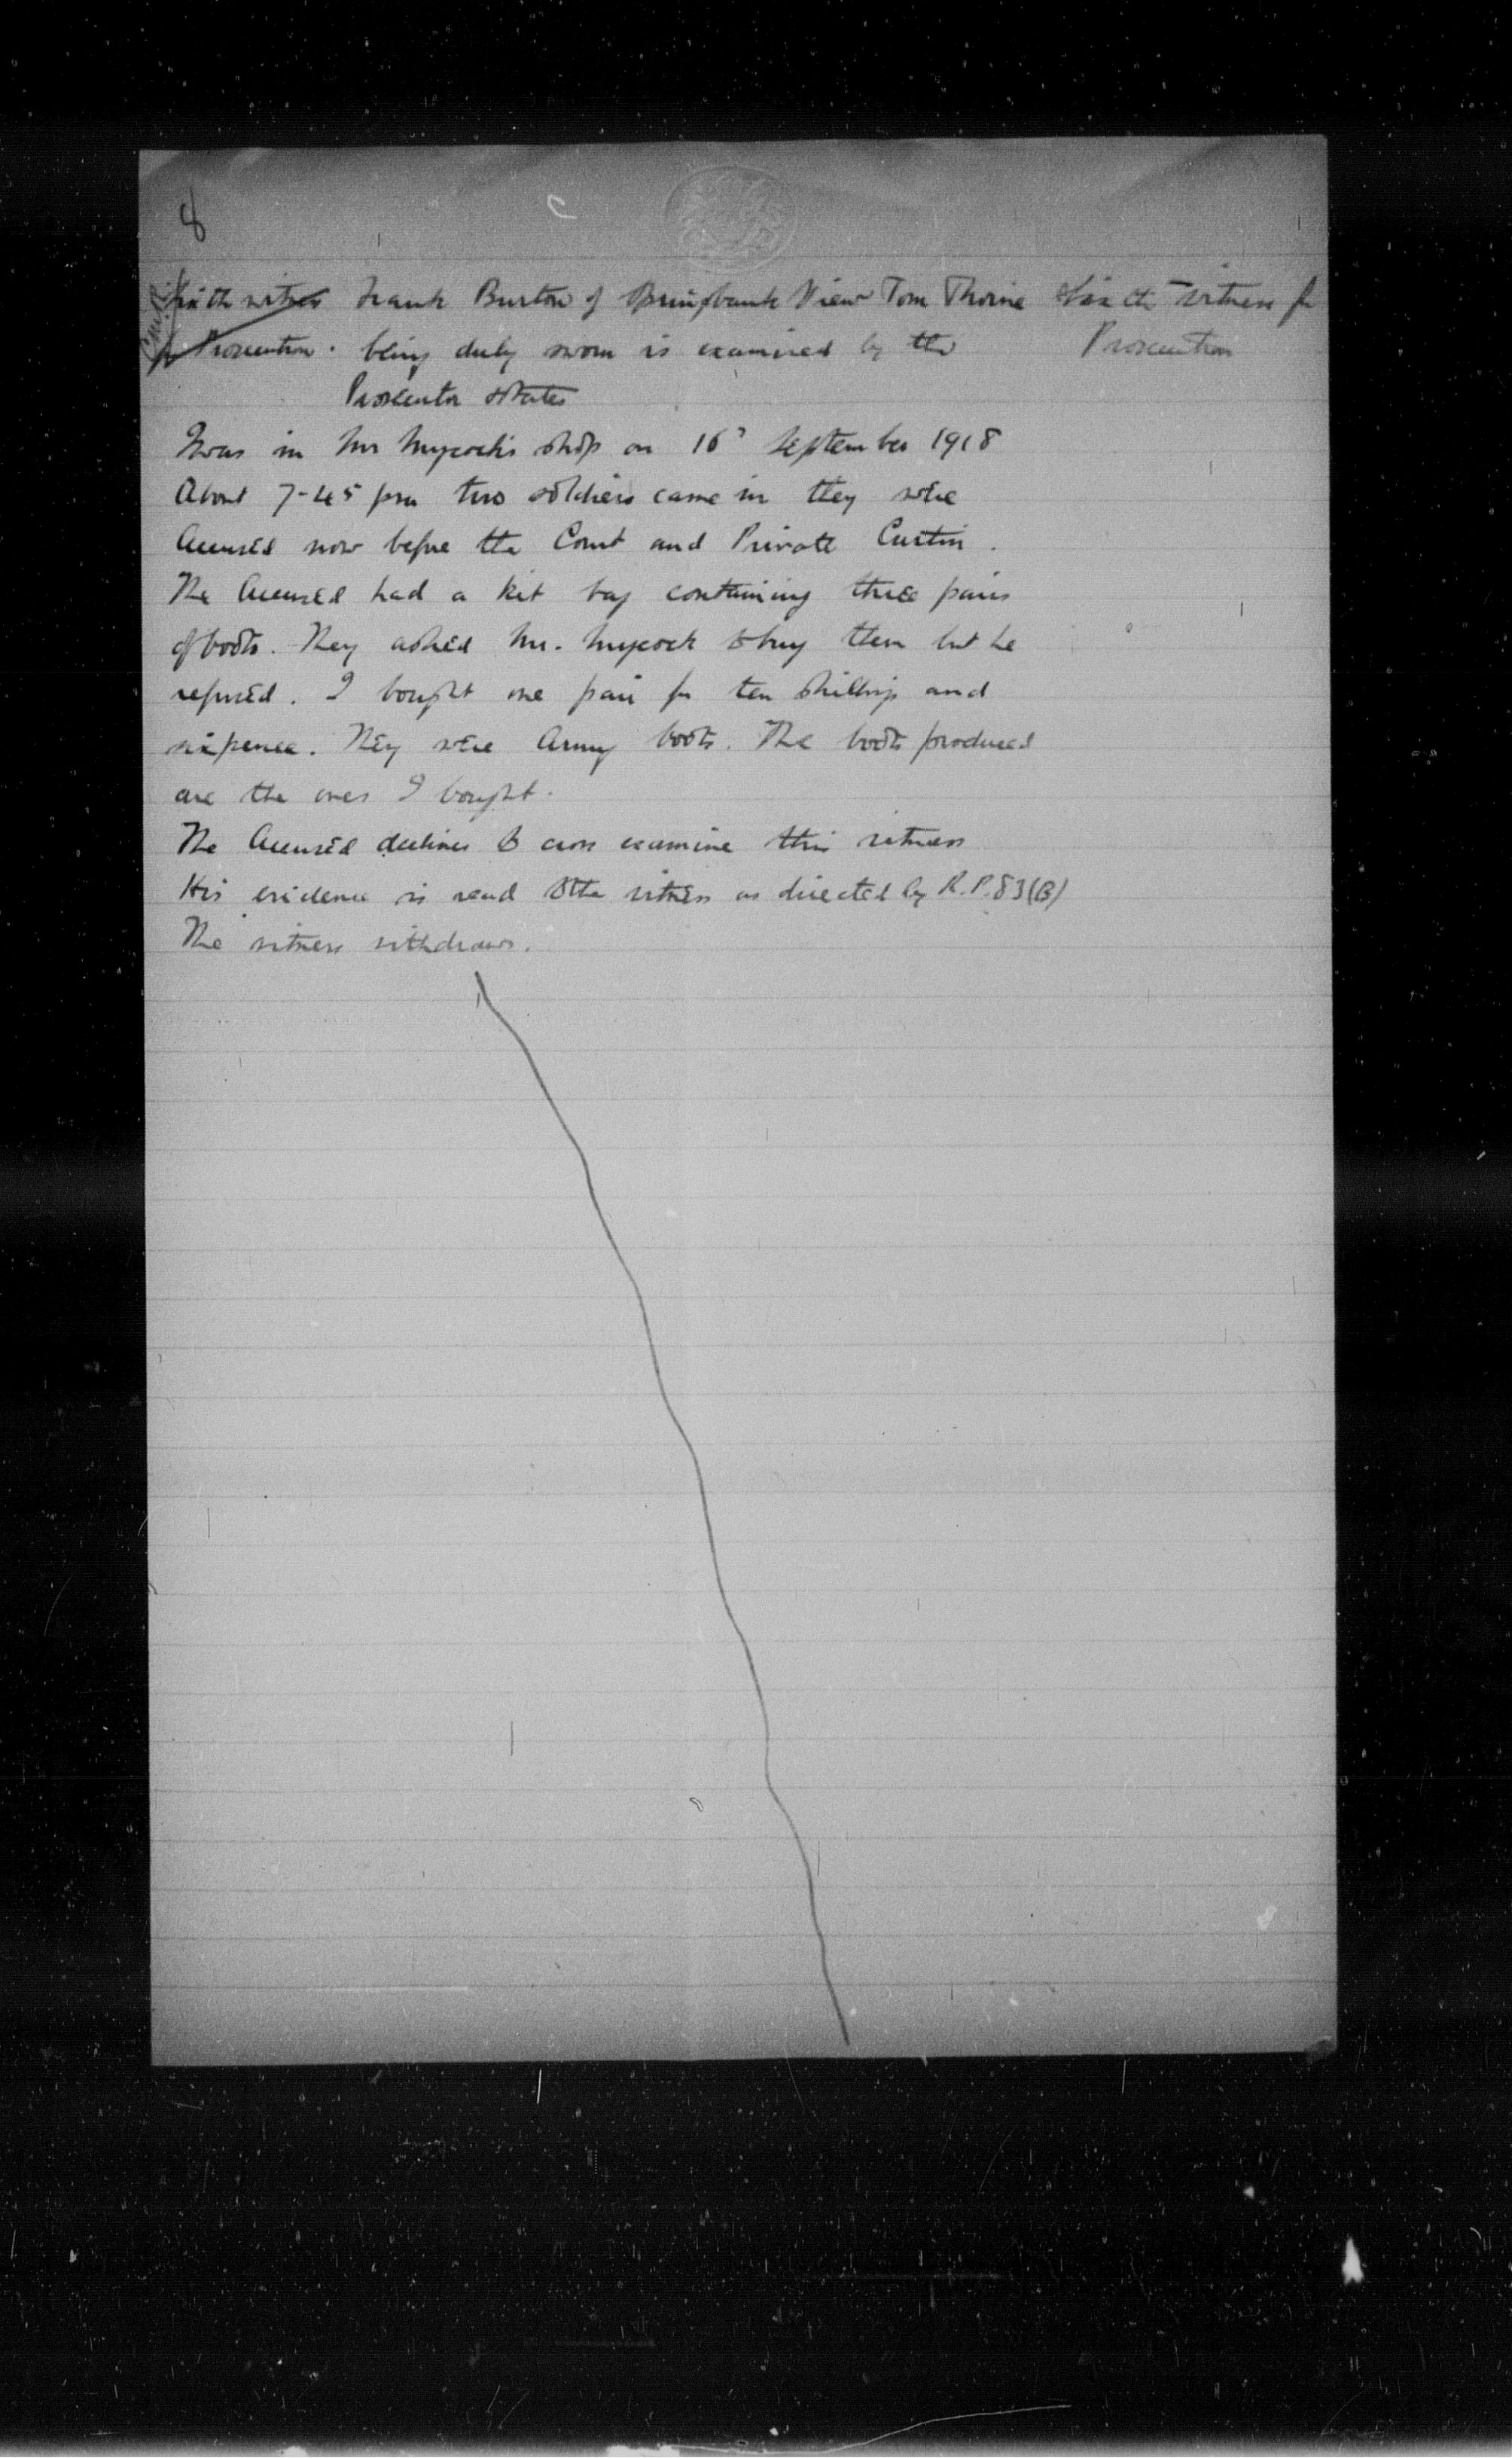 8
Sixth witness Frank Burton of Springbank View Tom Thorne Sixth witness for
for Prosecution. being duly sworn is examined by the Prosecution
Prosecutor states
I was in Mr Mycock's shop on 16 September 1918
About 7-45 pm two soldiers came in they were
Accused now before the Court and Private Curtin.
The Accused had a kit bag containing three pairs
of boots. They asked Mr. Mycock to buy them but he
refused. I bought one pair for ten shillings and
sixpence. They were Army boots. The boots produced
are the ones I bought.
The Accused declines to cross examine this witness
His evidence is read to the witness as directed by R.P. 83(B)
The witness withdraws.